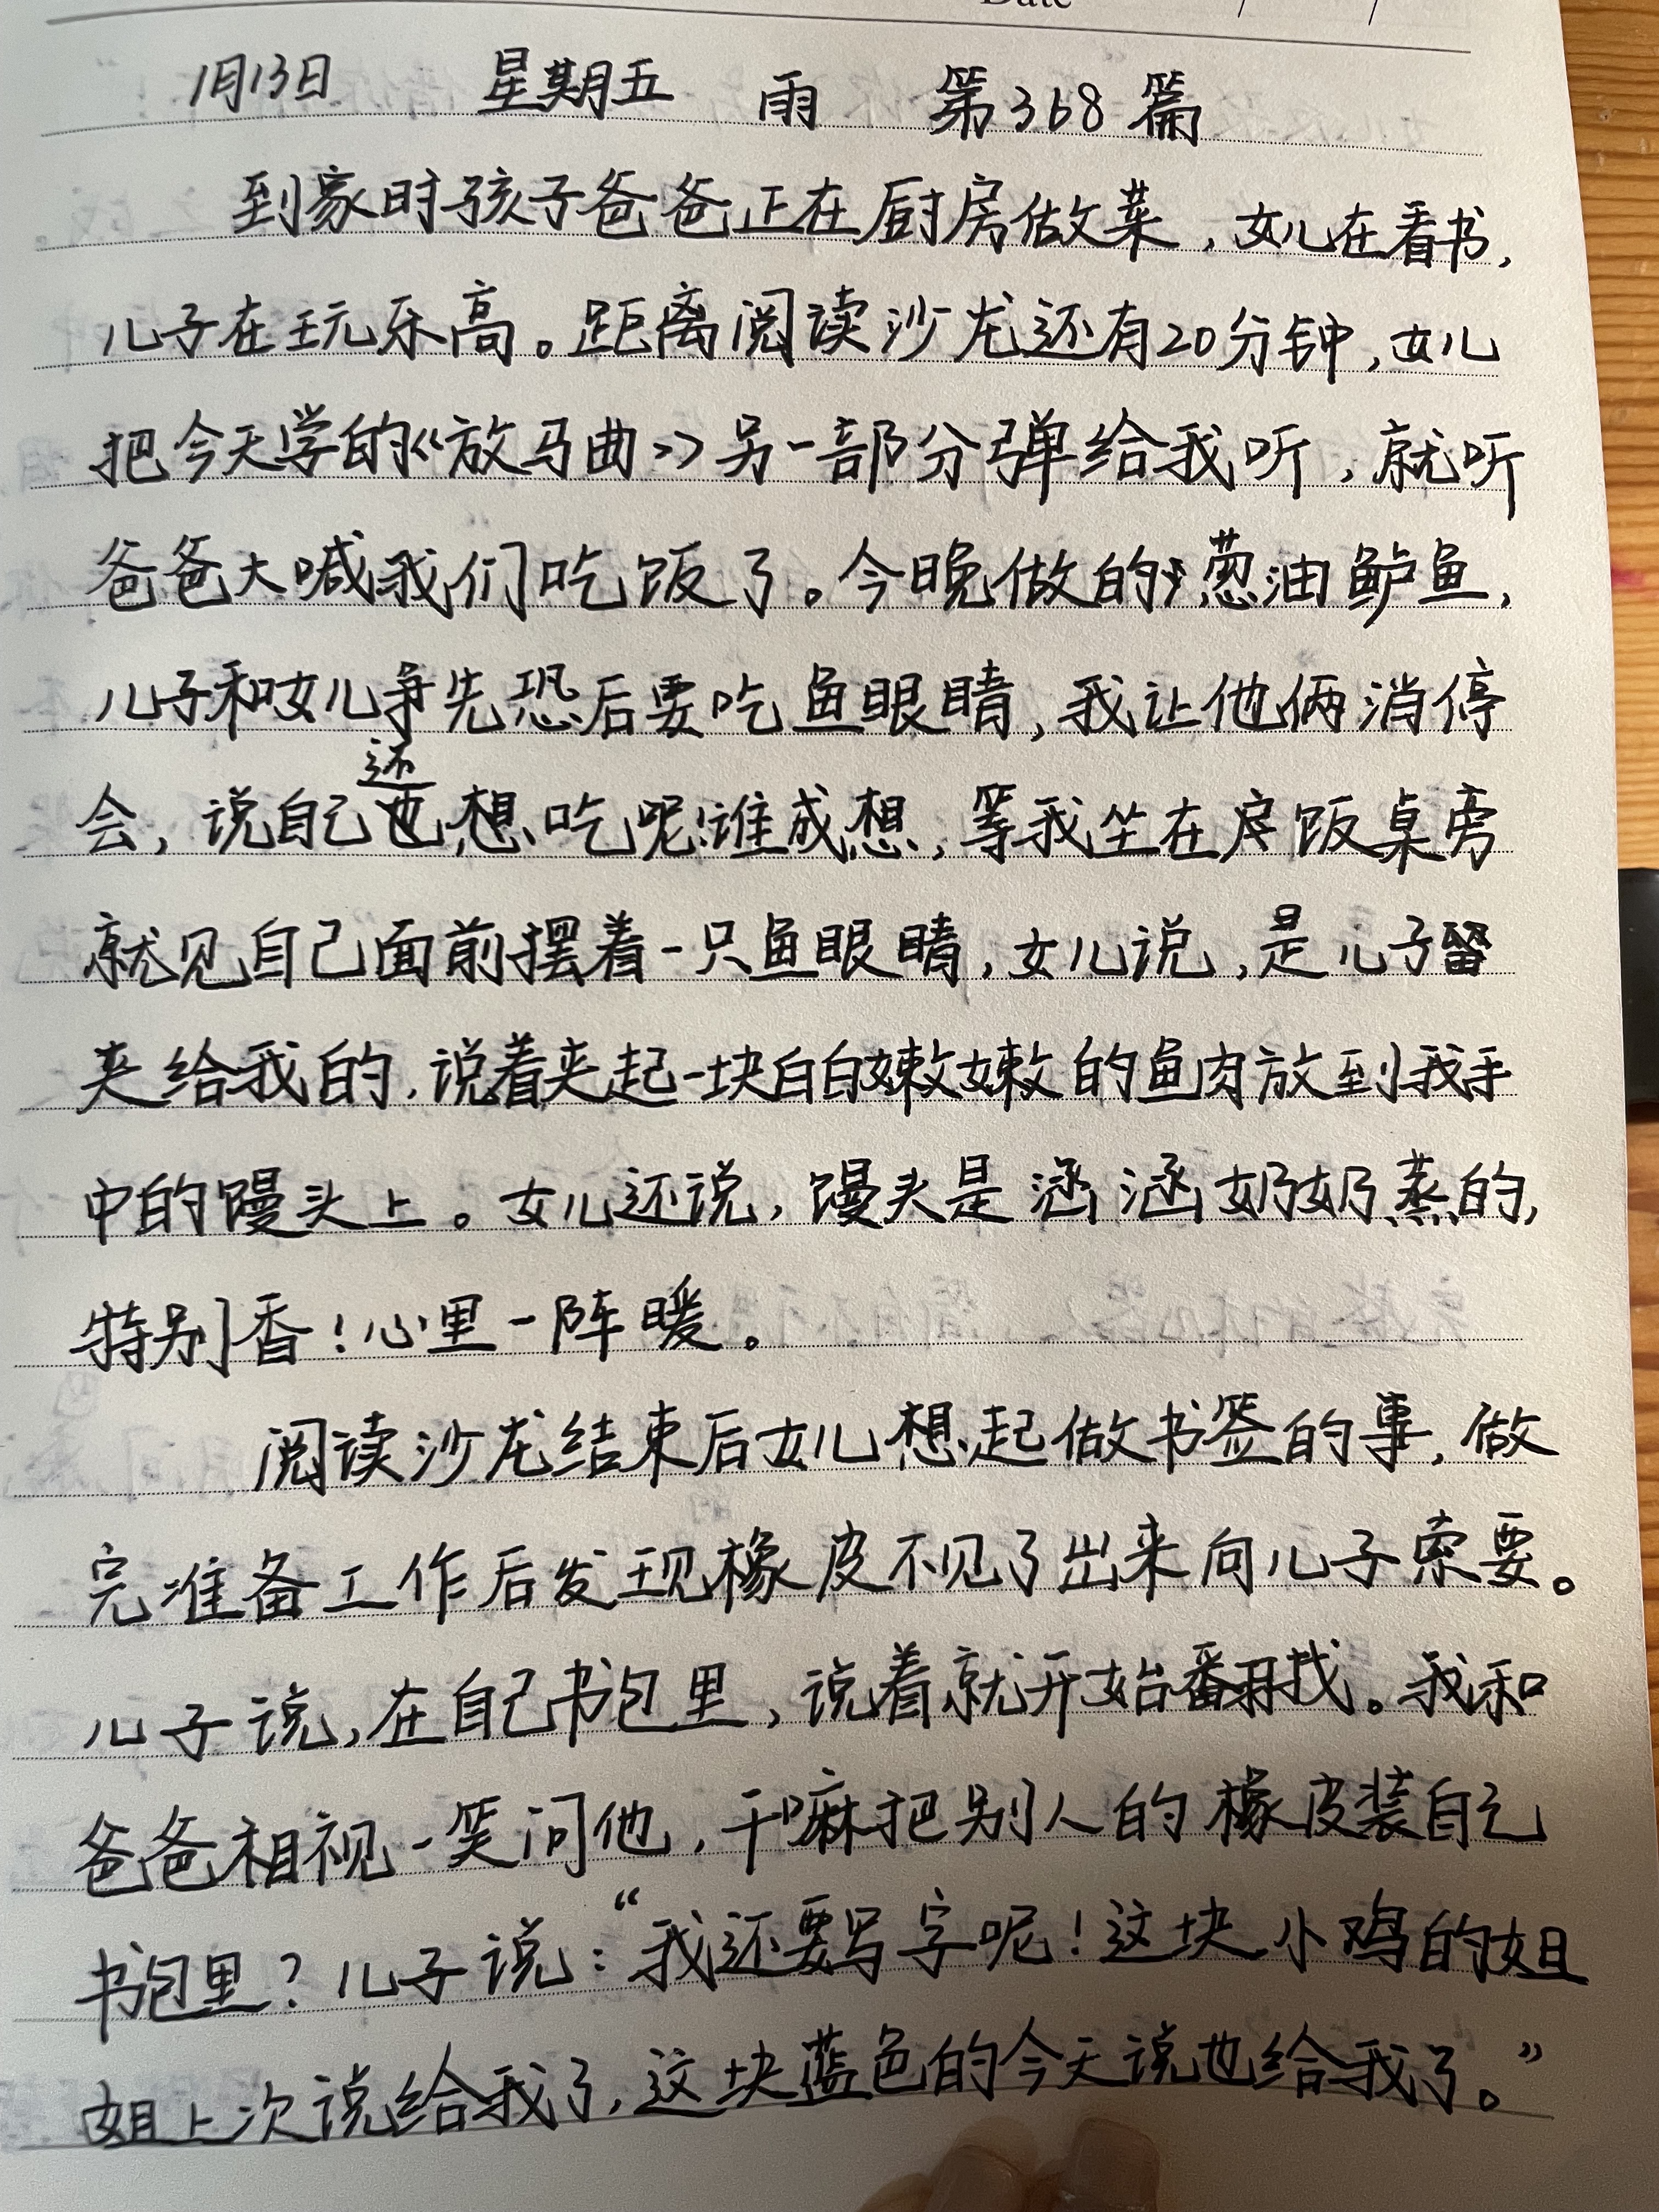 Date / /
1月13日 星期五 雨 第368篇
到家时孩子爸爸正在厨房做菜，女儿在看书，
儿子在玩乐高。距离阅读沙龙还有20分钟，女儿
把今天学的《放马曲》另一部分弹给我听，就听
爸爸大喊我们吃饭了。今晚做的葱油鲈鱼，
儿子和女儿争先恐后要吃鱼眼睛，我让他俩消停
会，说自己还也想吃呢！谁成想，等我坐在饭桌旁
就见自己面前摆着一只鱼眼睛，女儿说，是儿子留
夹给我的，说着夹起一块白白嫩嫩的鱼肉放到我手
中的馒头上。女儿还说，馒头是涵涵奶奶蒸的，
特别香！心里一阵暖。
阅读沙龙结束后女儿想起做书签的事，做
完准备工作后发现橡皮不见了出来向儿子索要。
儿子说，在自己书包里，说着就开始翻找。我和
爸爸相视一笑问他，干嘛把别人的橡皮装自己
书包里？儿子说：“我还要写字呢！这块小鸡的姐
姐上次说给我了，这块蓝色的今天说也给我了。”